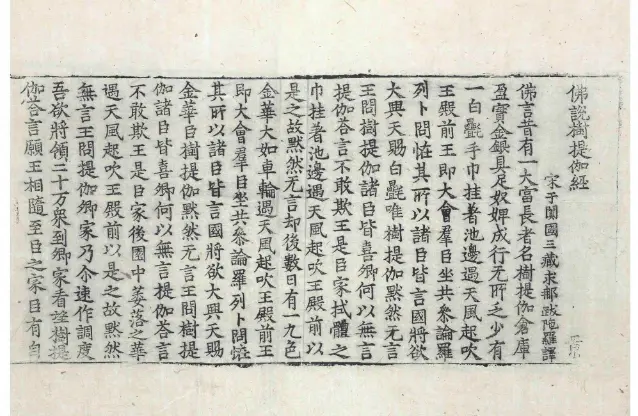 佛說樹提伽經
宋于闐國三藏求那跋陀羅譯
佛言昔有一大富長者名樹提伽倉庫
盈寶金銀具足奴婢成行无所之少有
一白㲲手巾挂著池邊遇天風起吹
王殿前王即大會羣臣坐共參論羅
列卜問怪其所以諸臣皆言國將欲
大興天賜白㲲唯樹提伽默然无言
王問樹提伽諸臣皆喜卿何以無言
提伽荅言不敢欺王是臣家拭體之
巾挂著池邊遇天風起吹王殿前以
是之故默然无言却後數日有一九色
金華大如車輪遇天風起吹王殿前王
即大會羣臣坐共參論羅列卜問怪
其所以諸臣皆言國將欲大興天賜
金華臣樹提伽默然无言王問樹提
伽諸臣皆喜卿何以無言提伽荅言
不敢欺王是臣家後園中萎落之華
遇天風起吹王殿前以是之故默然
無言王問提伽卿家乃尒速作調度
吾欲將領二十万眾到卿家看樹提
伽荅言願王相隨至臣之家臣有自